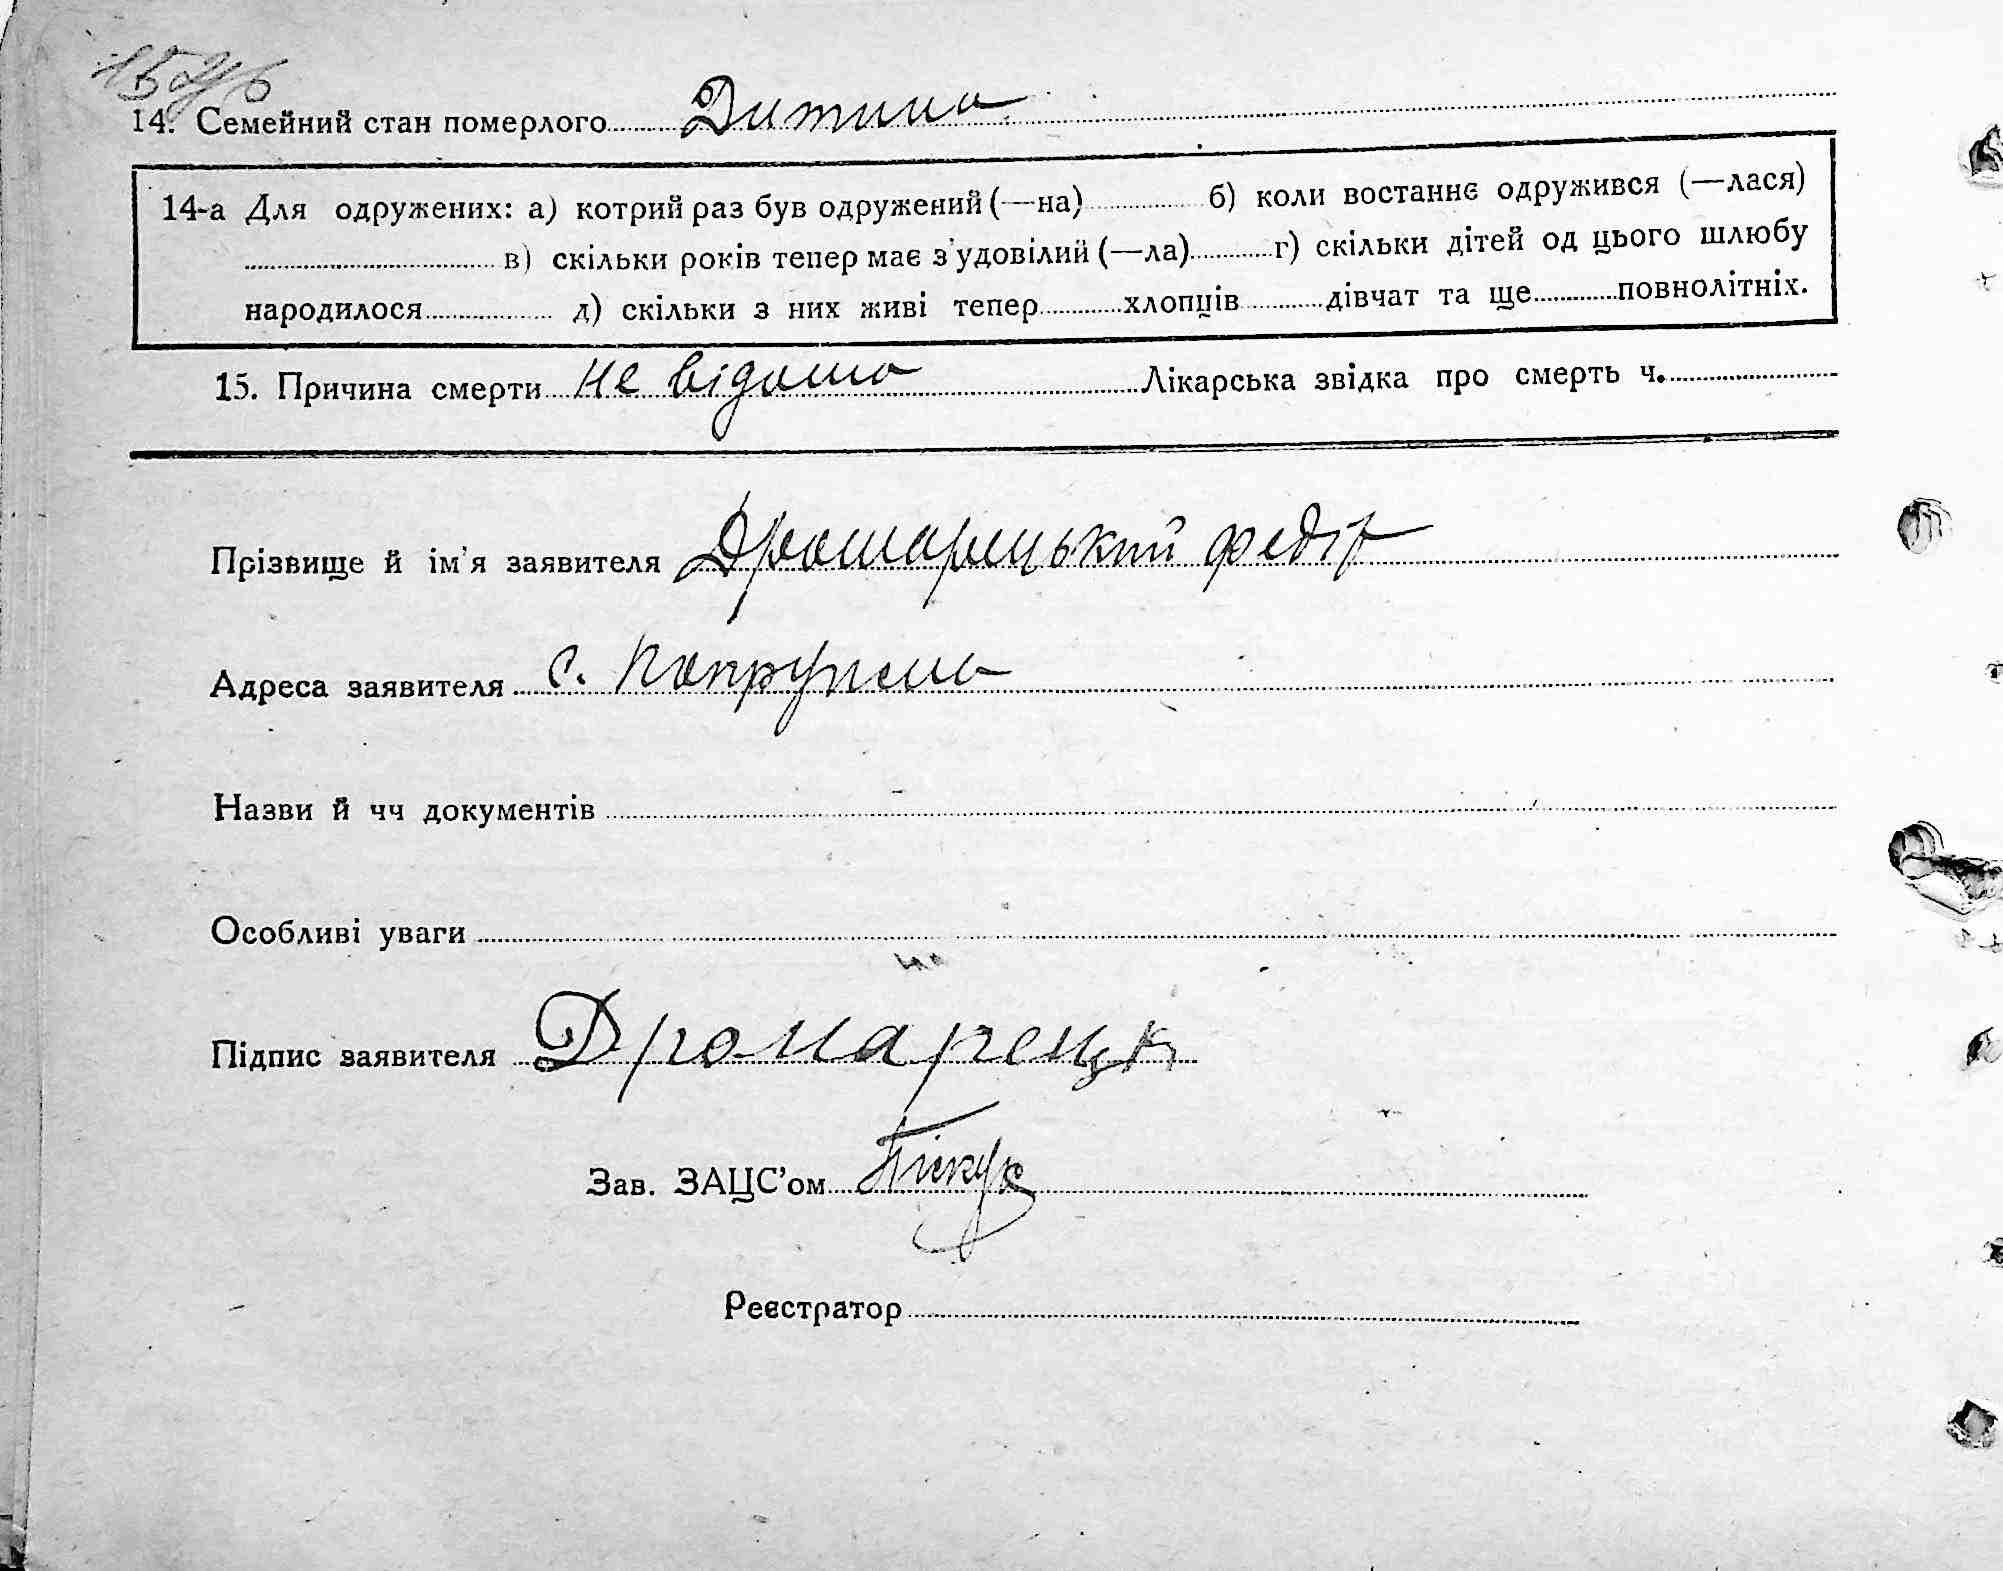 14. Семейний стан померлого Дитина
14-а Для одружених: а) котрий раз був одружений (—на) б) коли востаннє одружився (—лася)
в) скільки років тепер має з'удовілий (—ла) г) скільки дітей од цього шлюбу
народилося д) скільки з них живі тепер хлопців дівчат та ще повнолітніх.
15. Причина смерти не відома Лікарська звідка про смерть ч.
Прізвище й ім'я заявителя Дромарецький Федір
Адреса заявителя с. Попружна
Назви й чч документів
Особливі уваги
Підпис заявителя Дромарецьк
Зав. ЗАЦС'ом
Реєстратор